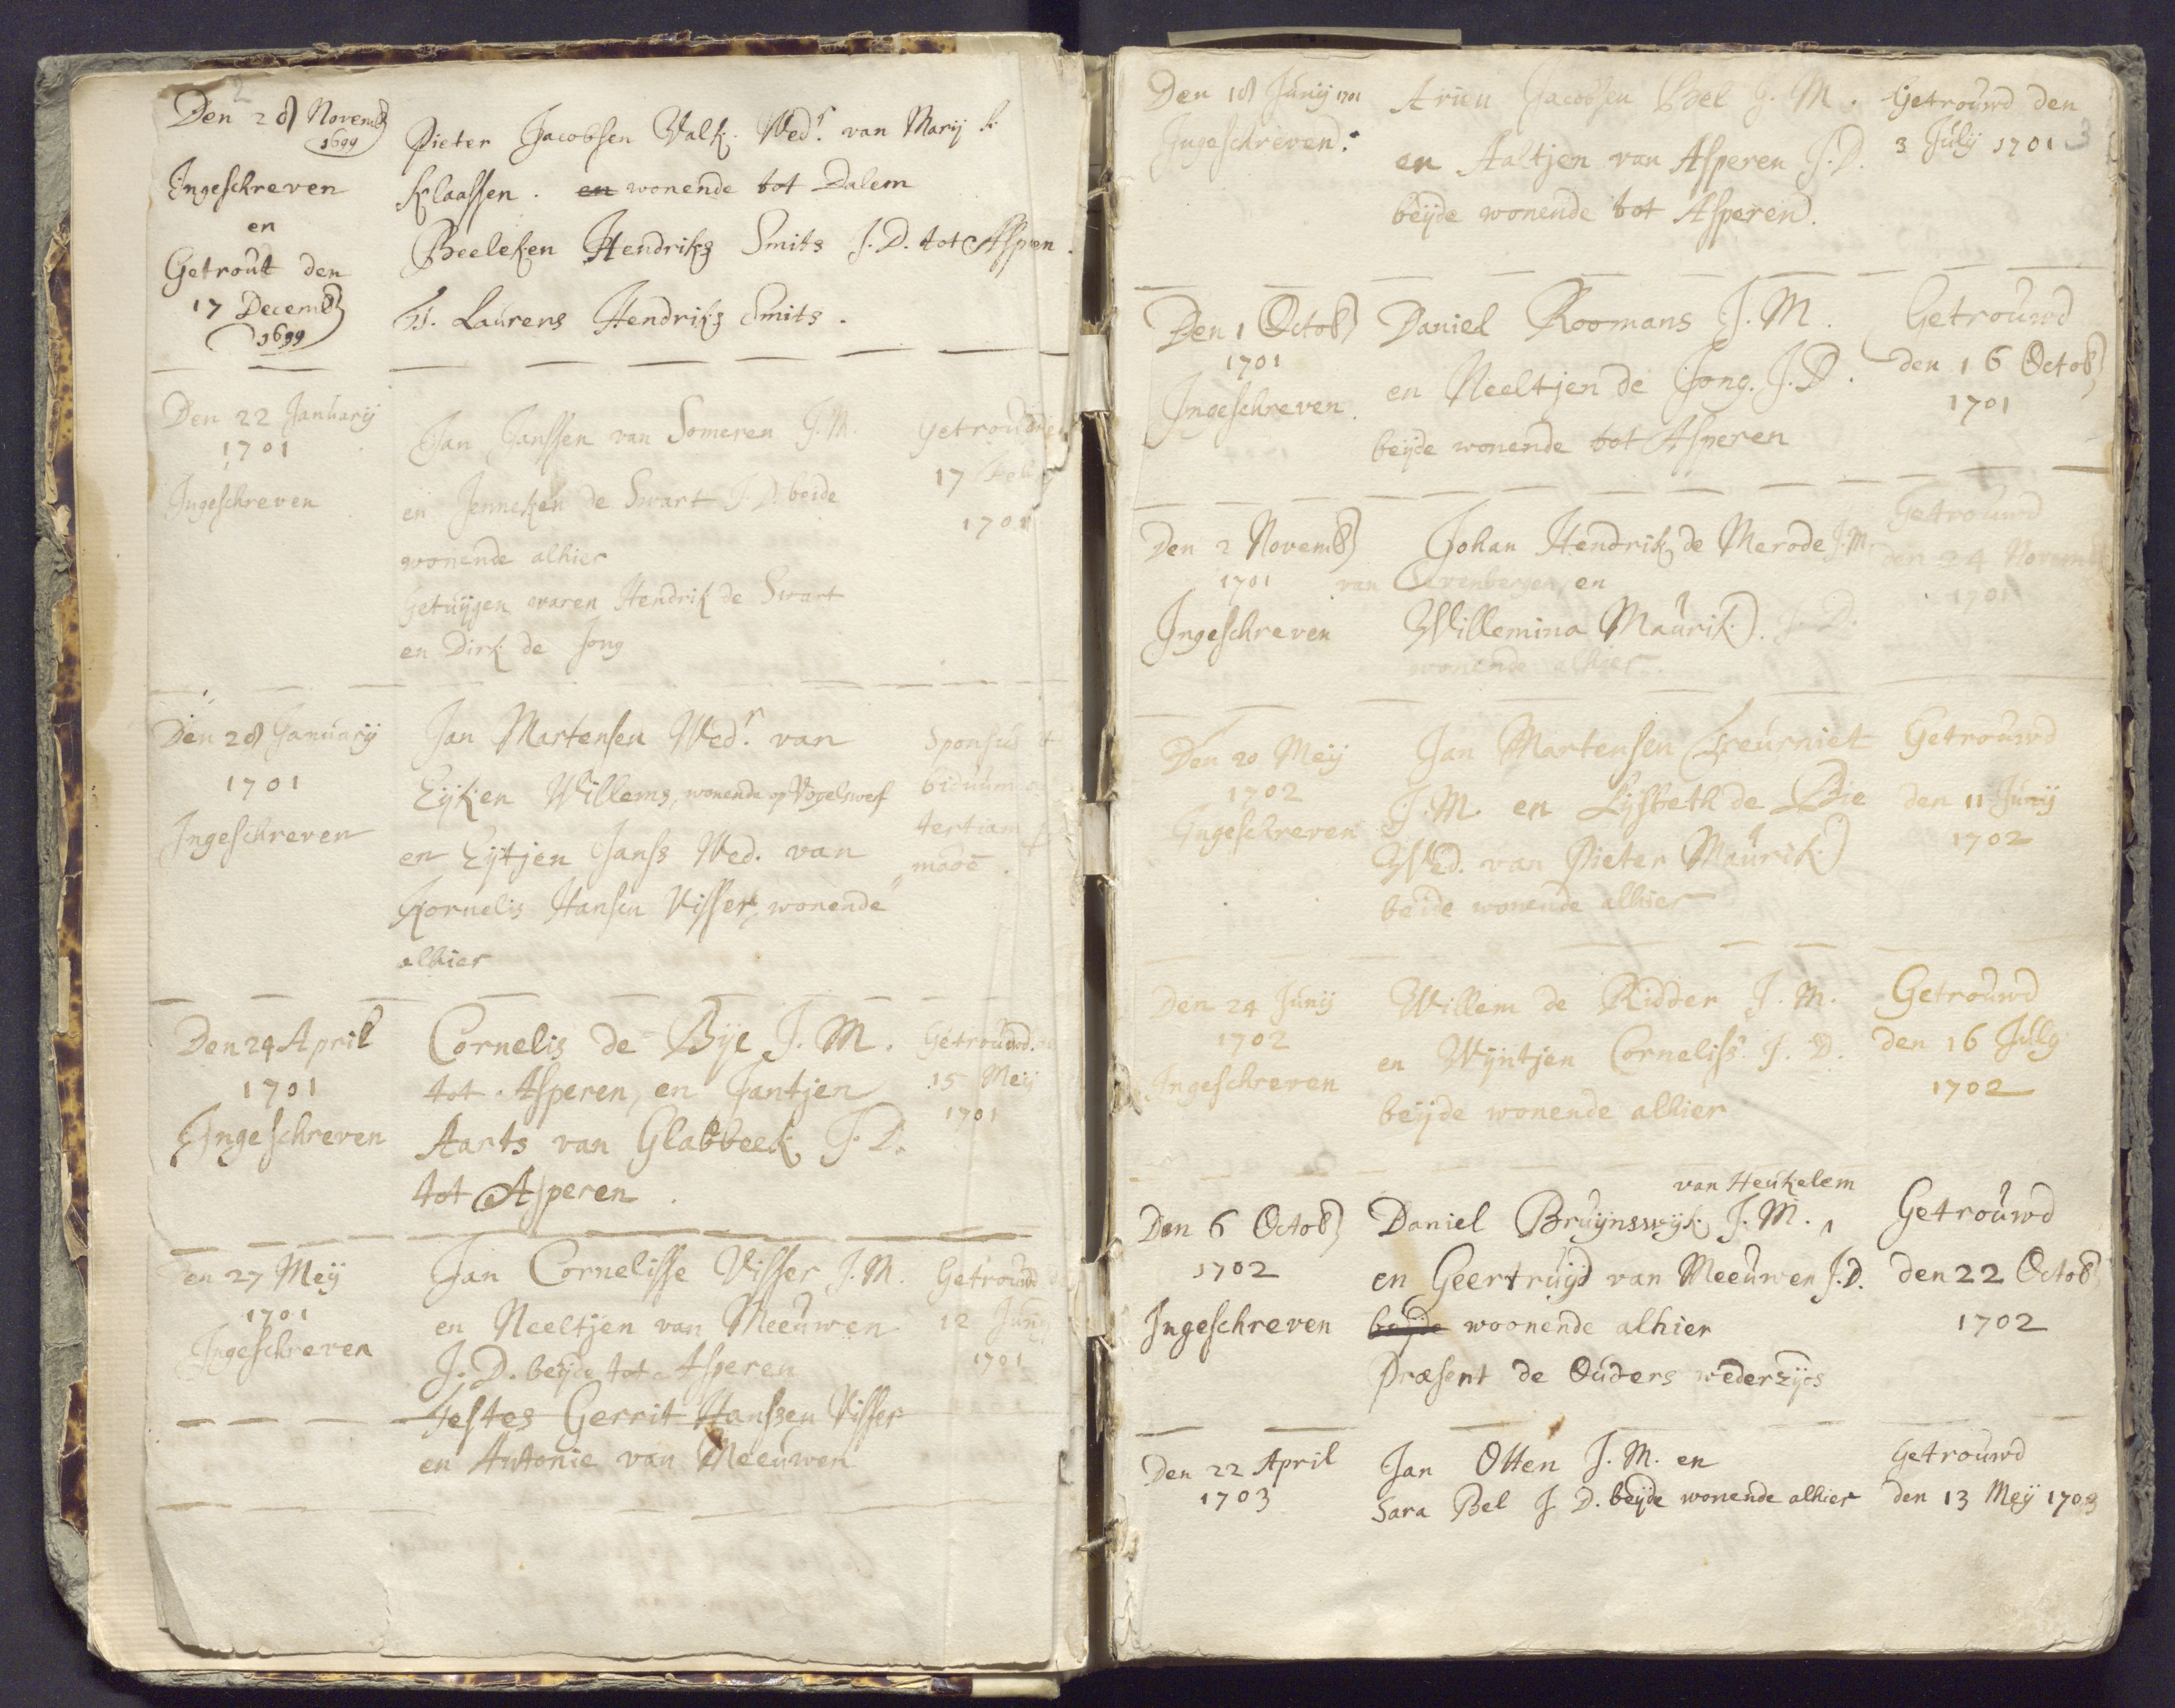 2
Den 28 Novemb
1699
Ingeschreven
en
Getrout den
17 Decemb
1699
Pieter Jacobsen Valk. Wedr. van Marij
Klaassen. en wonende tot Dalem
Beeleken Hendriks Smits J.D. tot Aspren.
T. Laurens Hendriks Smits.
Den 22 Januarij
1701
Ingeschreven
Jan Janssen van Someren J.M.
en Jenneken de Swart J.D. beide
wonende alhier
Getuijgen waren Hendrik de Swart
en Dirk de Jong
Getrouwd
17 Feb
1701
Den 28 Januarij
1701
Ingeschreven
Jan Martensen Wedr. van
Eijken Willems, wonende op Vogelswerf
en Eijtjen Janss Wed. van
Kornelis Hansen Visser, wonende
alhier
Sponsus
biduum
tertiam
Den 24 April
1701
Ingeschreven
Cornelis de Bye J. M.
tot Asperen, en Jantjen
Aarts van Glabbeek J. D.
tot Asperen.
Getrouwd
15 Meij
1701
Den 27 Meij
1701
Ingeschreven
Jan Cornelisse Visser J.M.
en Neeltjen van Meeuwen
J.D. beijde tot Asperen
testes Gerrit Hanssen Visser
en Antonie van Meeuwen
Getrouwd
12 Junij
1701
3
Den 18 Junij 1701
Ingeschreven.
Arien Jacobsen Bel J. M.
en Aaltjen van Asperen J.D.
beijde wonende tot Asperen.
Getrouwd den
3 Julij 1701
Den 1 Octob
1701
Ingeschreven.
Daniel Roomans J.M.
en Neeltjen de Jong. J.D.
beijde wonende tot Asperen
Getrouwd
den 16 Octob
1701
Den 2 Novemb
1701
Ingeschreven
Johan Hendrik de Merode J.M.
van Sevenbergen, en
Willemina Maurik. J. D.
wonende alhier.
Getrouwd
den 24 Novemb
1701
Den 20 Meij
1702
Ingeschreven
Jan Martensen Treurniet
J.M. en Lijsbeth de Bie
Wed. van Pieter Maurik
beide wonende alhier
Getrouwd
den 11 Junij
1702
Den 24 Junij
1702
Ingeschreven
Willem de Ridder J. M.
en Wijntjen Corneliss J. D.
beijde wonende alhier
Getrouwd
den 16 July
1702
Den 6 Octob
1702
Ingeschreven
van Heukelem
Daniel Bruijnswijk J. M.
en Geertruijd van Meeuwen J.D.
beijde woonende alhier
Præsent de Ouders wederzijds
Getrouwd
den 22 Octob
1702
Den 22 April
1703
Jan Otten J. M. en
Sara Bel J D. beijde wonende alhier
Getrouwd
den 13 Meij 1703